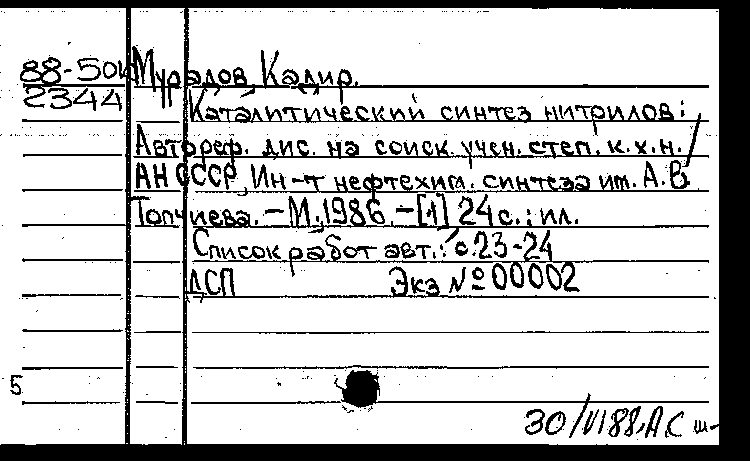 88-50к Мурадов, Кадир.
2344 Каталитический синтез нитрилов:
Автореф. дис. на соиск. учен. степ. к.х.н. /
АН СССР, Ин-т нефтехим. синтеза им. А.В.
Топчиева. - М., 1986. - [1] 24 с.: ил.
Список работ авт.: с.23-24
ДСП Экз № 00002
5
30/VI88. А.С